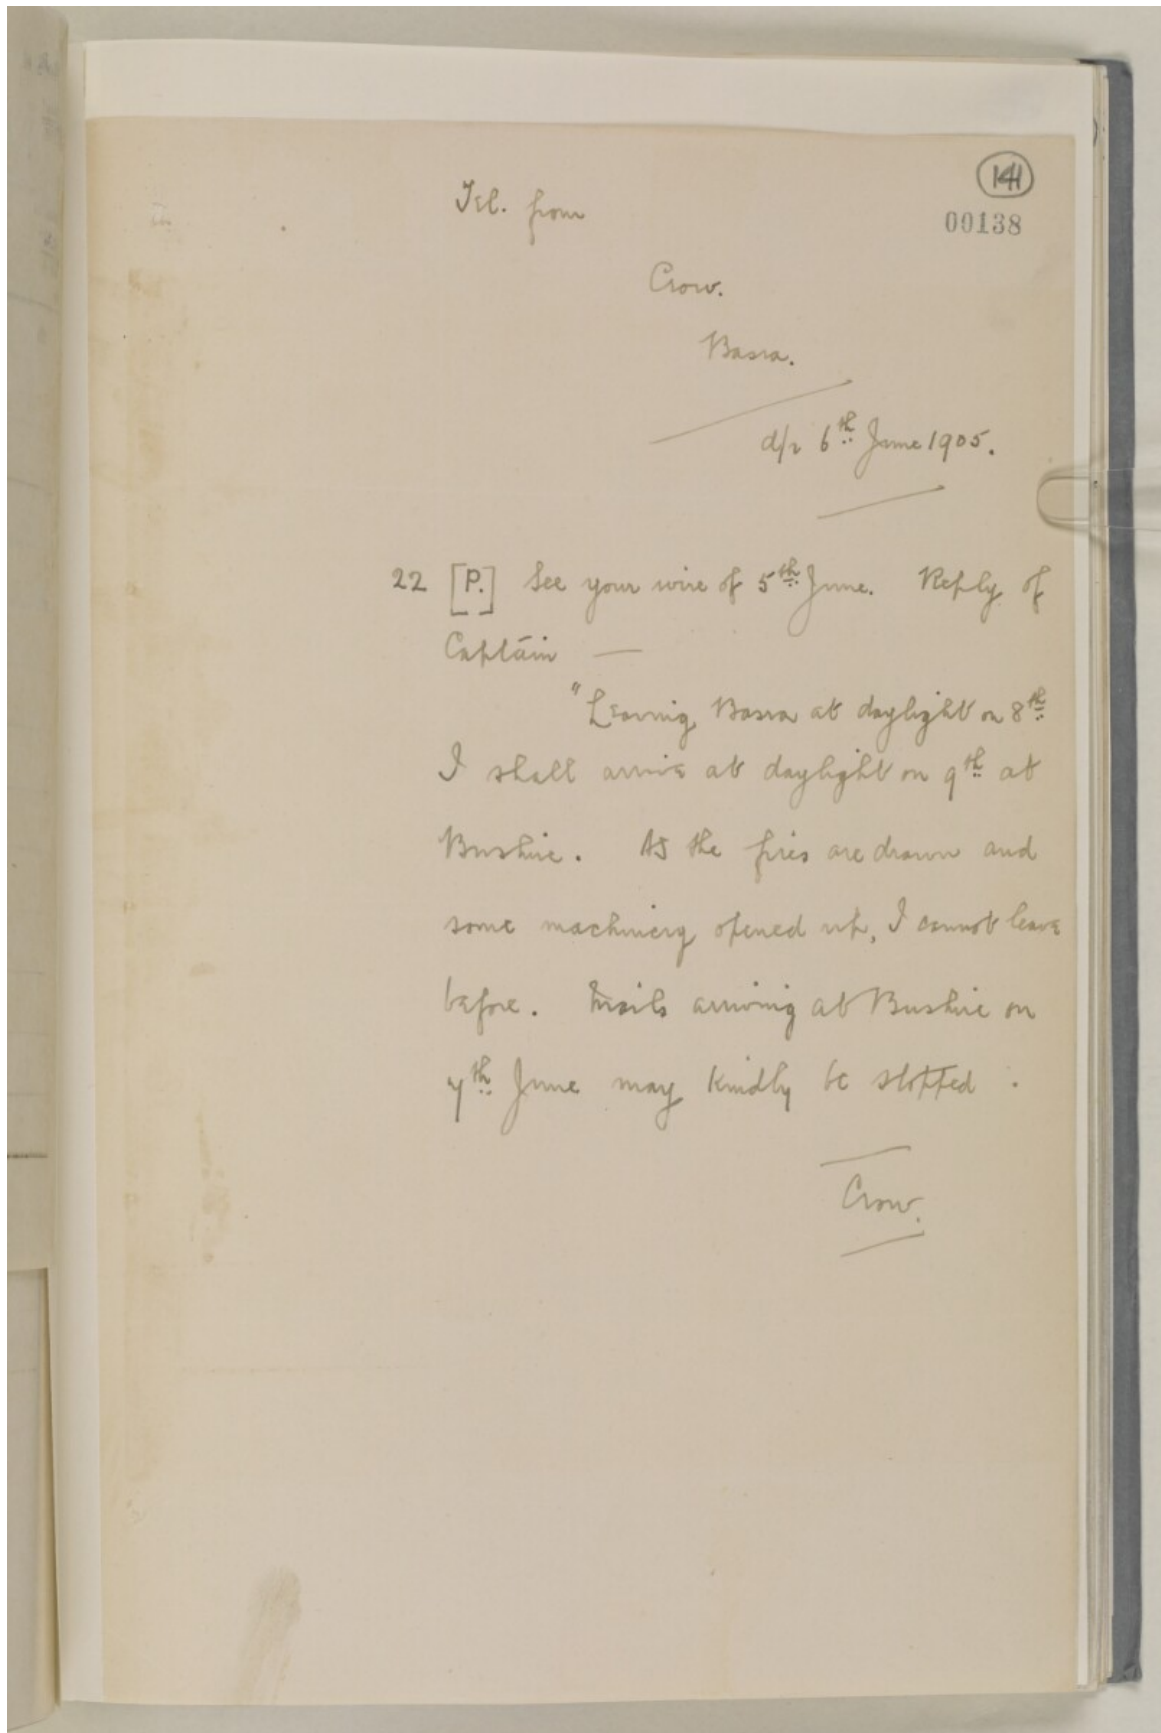 141
00138
Tel. from
Crow.
Basra.
d/r 6th June 1905.
22 [P.] See your wire of 5th June. Reply of
Captain —
"Leaving Basra at daylight on 8th
I shall arrive at daylight on 9th at
Bushire. As the fires are drawn and
some machinery opened up, I cannot leave
before. Mails arriving at Bushire on
7th June may kindly be stopped.
Crow.